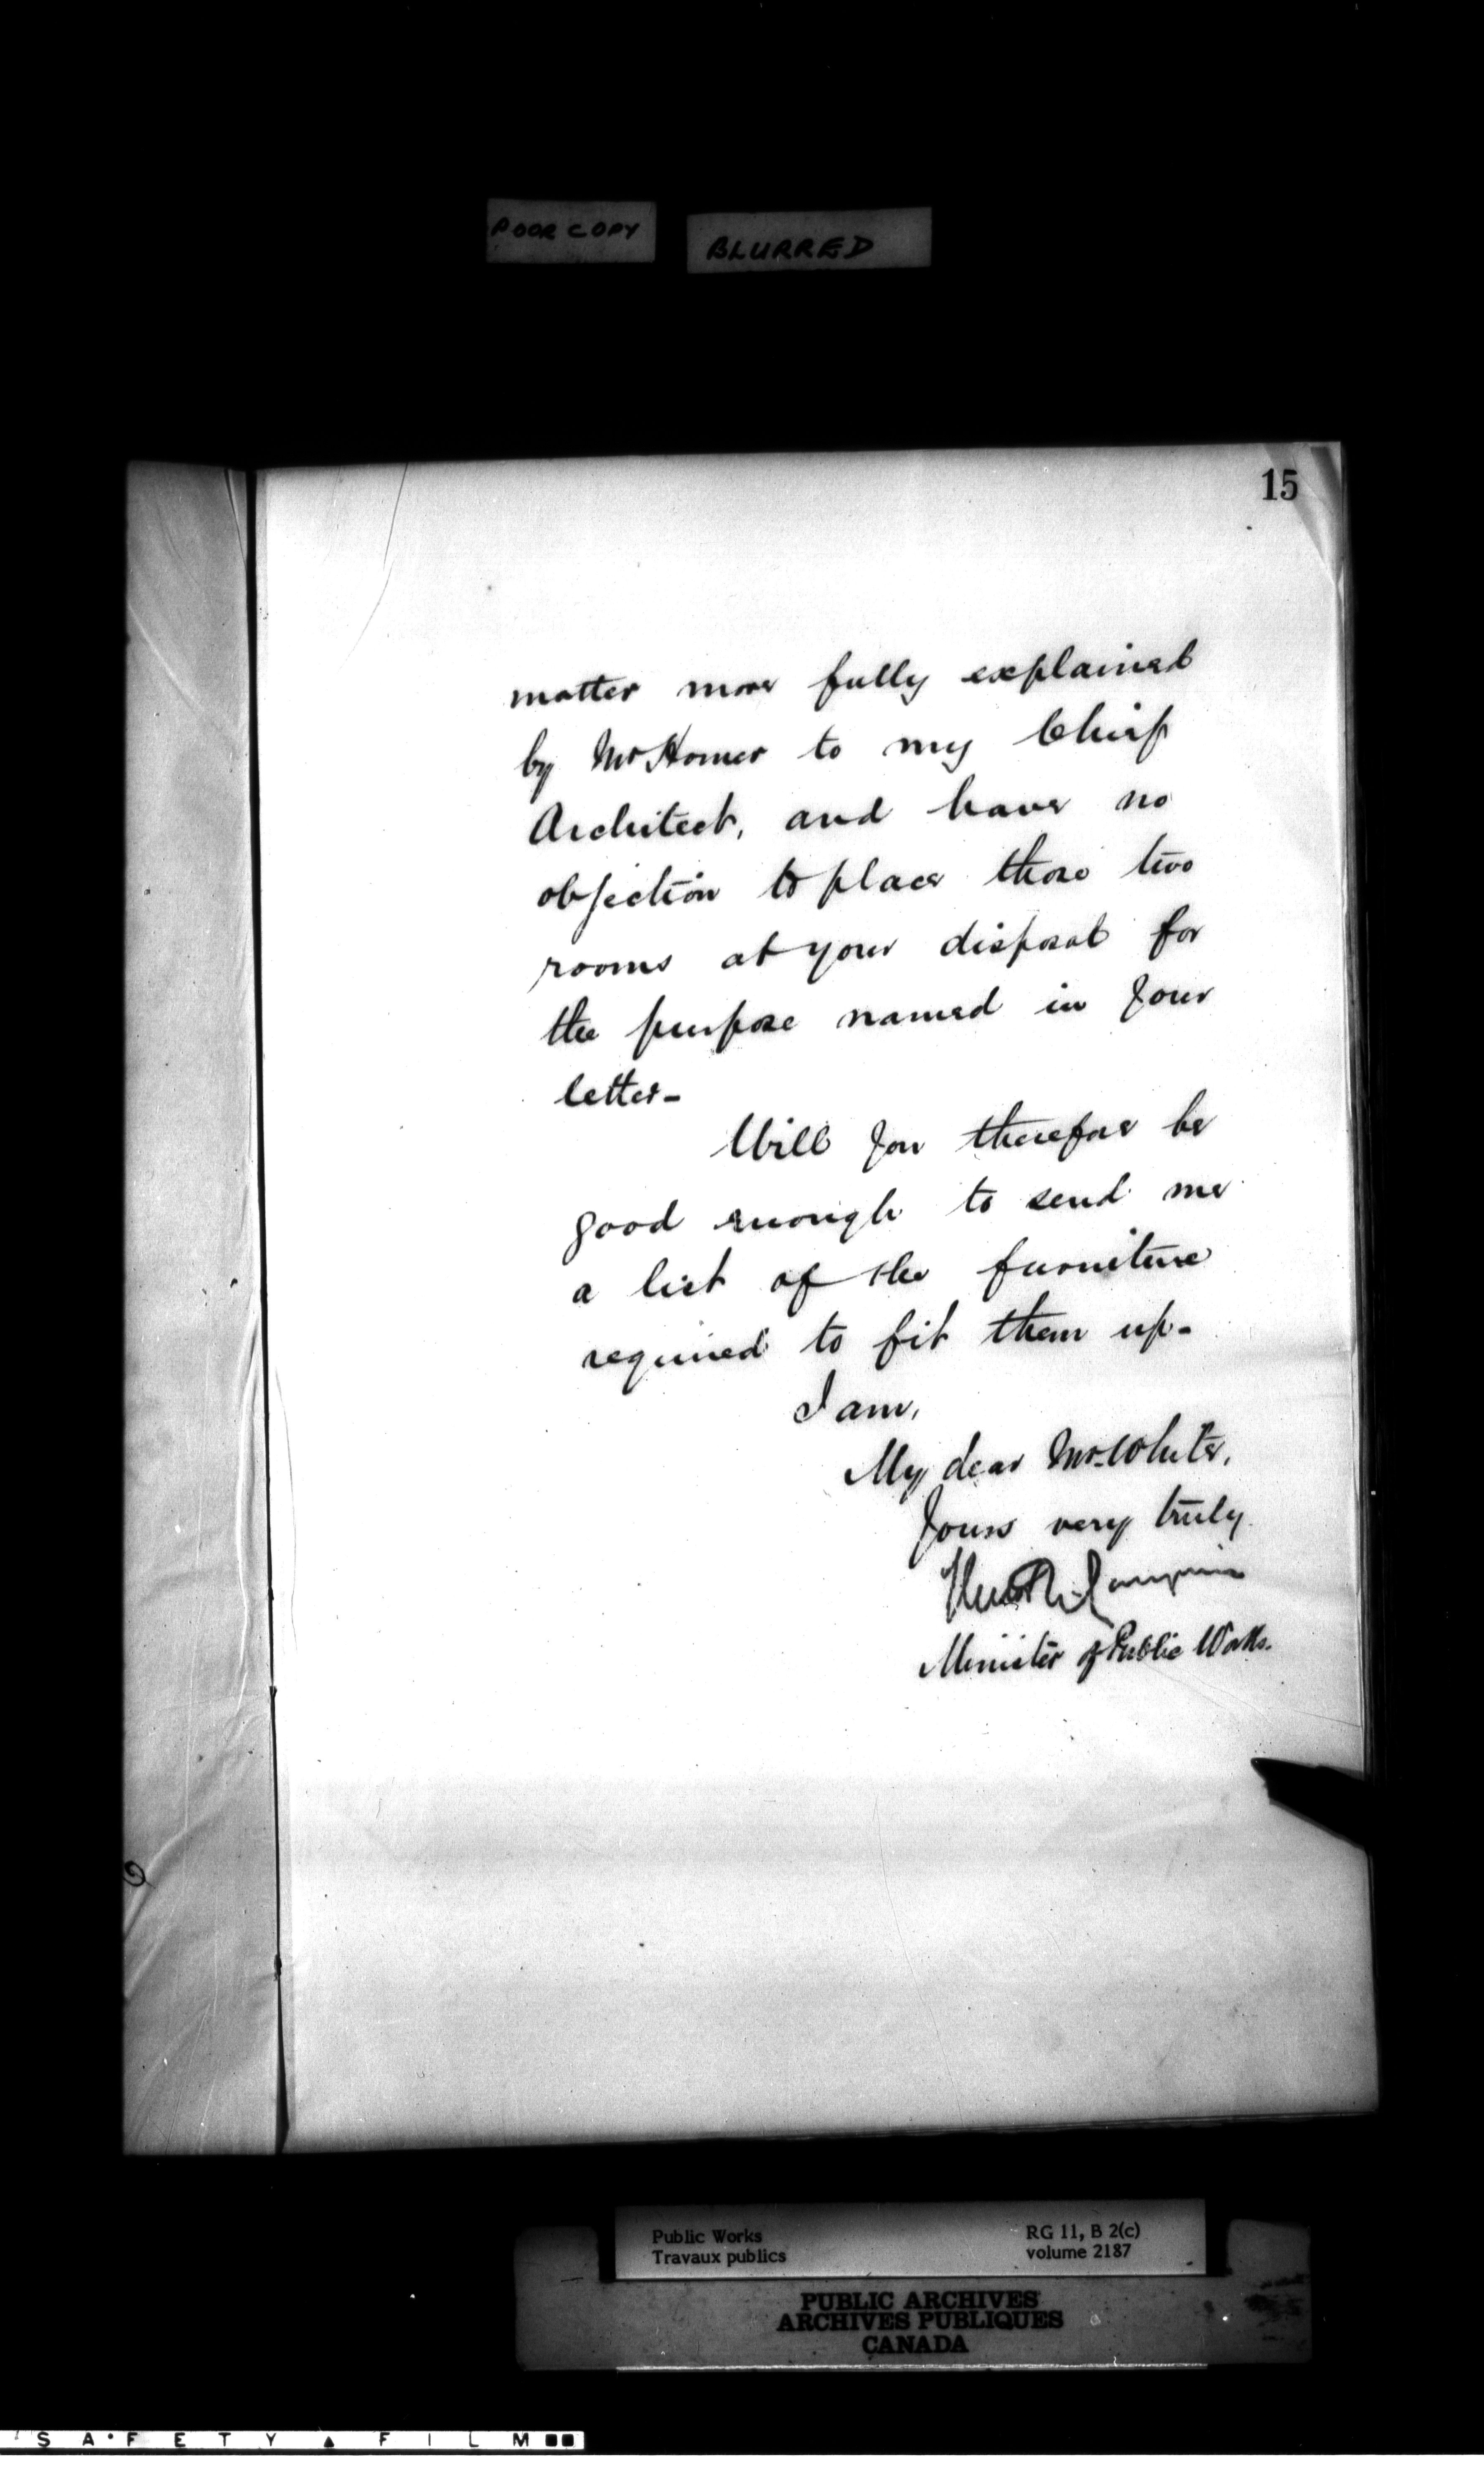 POOR COPY
BLURRED
15
matter more fully explained
by Mr Homer to my Chief
Architect, and have no
objection to place those two
rooms at your disposal for
the purpose named in your
letter-
Will you therefore be
good enough to send me
a list of the furniture
required to fit them up-
I am,
My dear Mr. White,
Yours very truly
Langevin
Minister of Public Works.
Public Works
Travaux publics
RG 11, B 2(c)
volume 2187
PUBLIC ARCHIVES
ARCHIVES PUBLIQUES
CANADA
SAFETY ▲ FILM